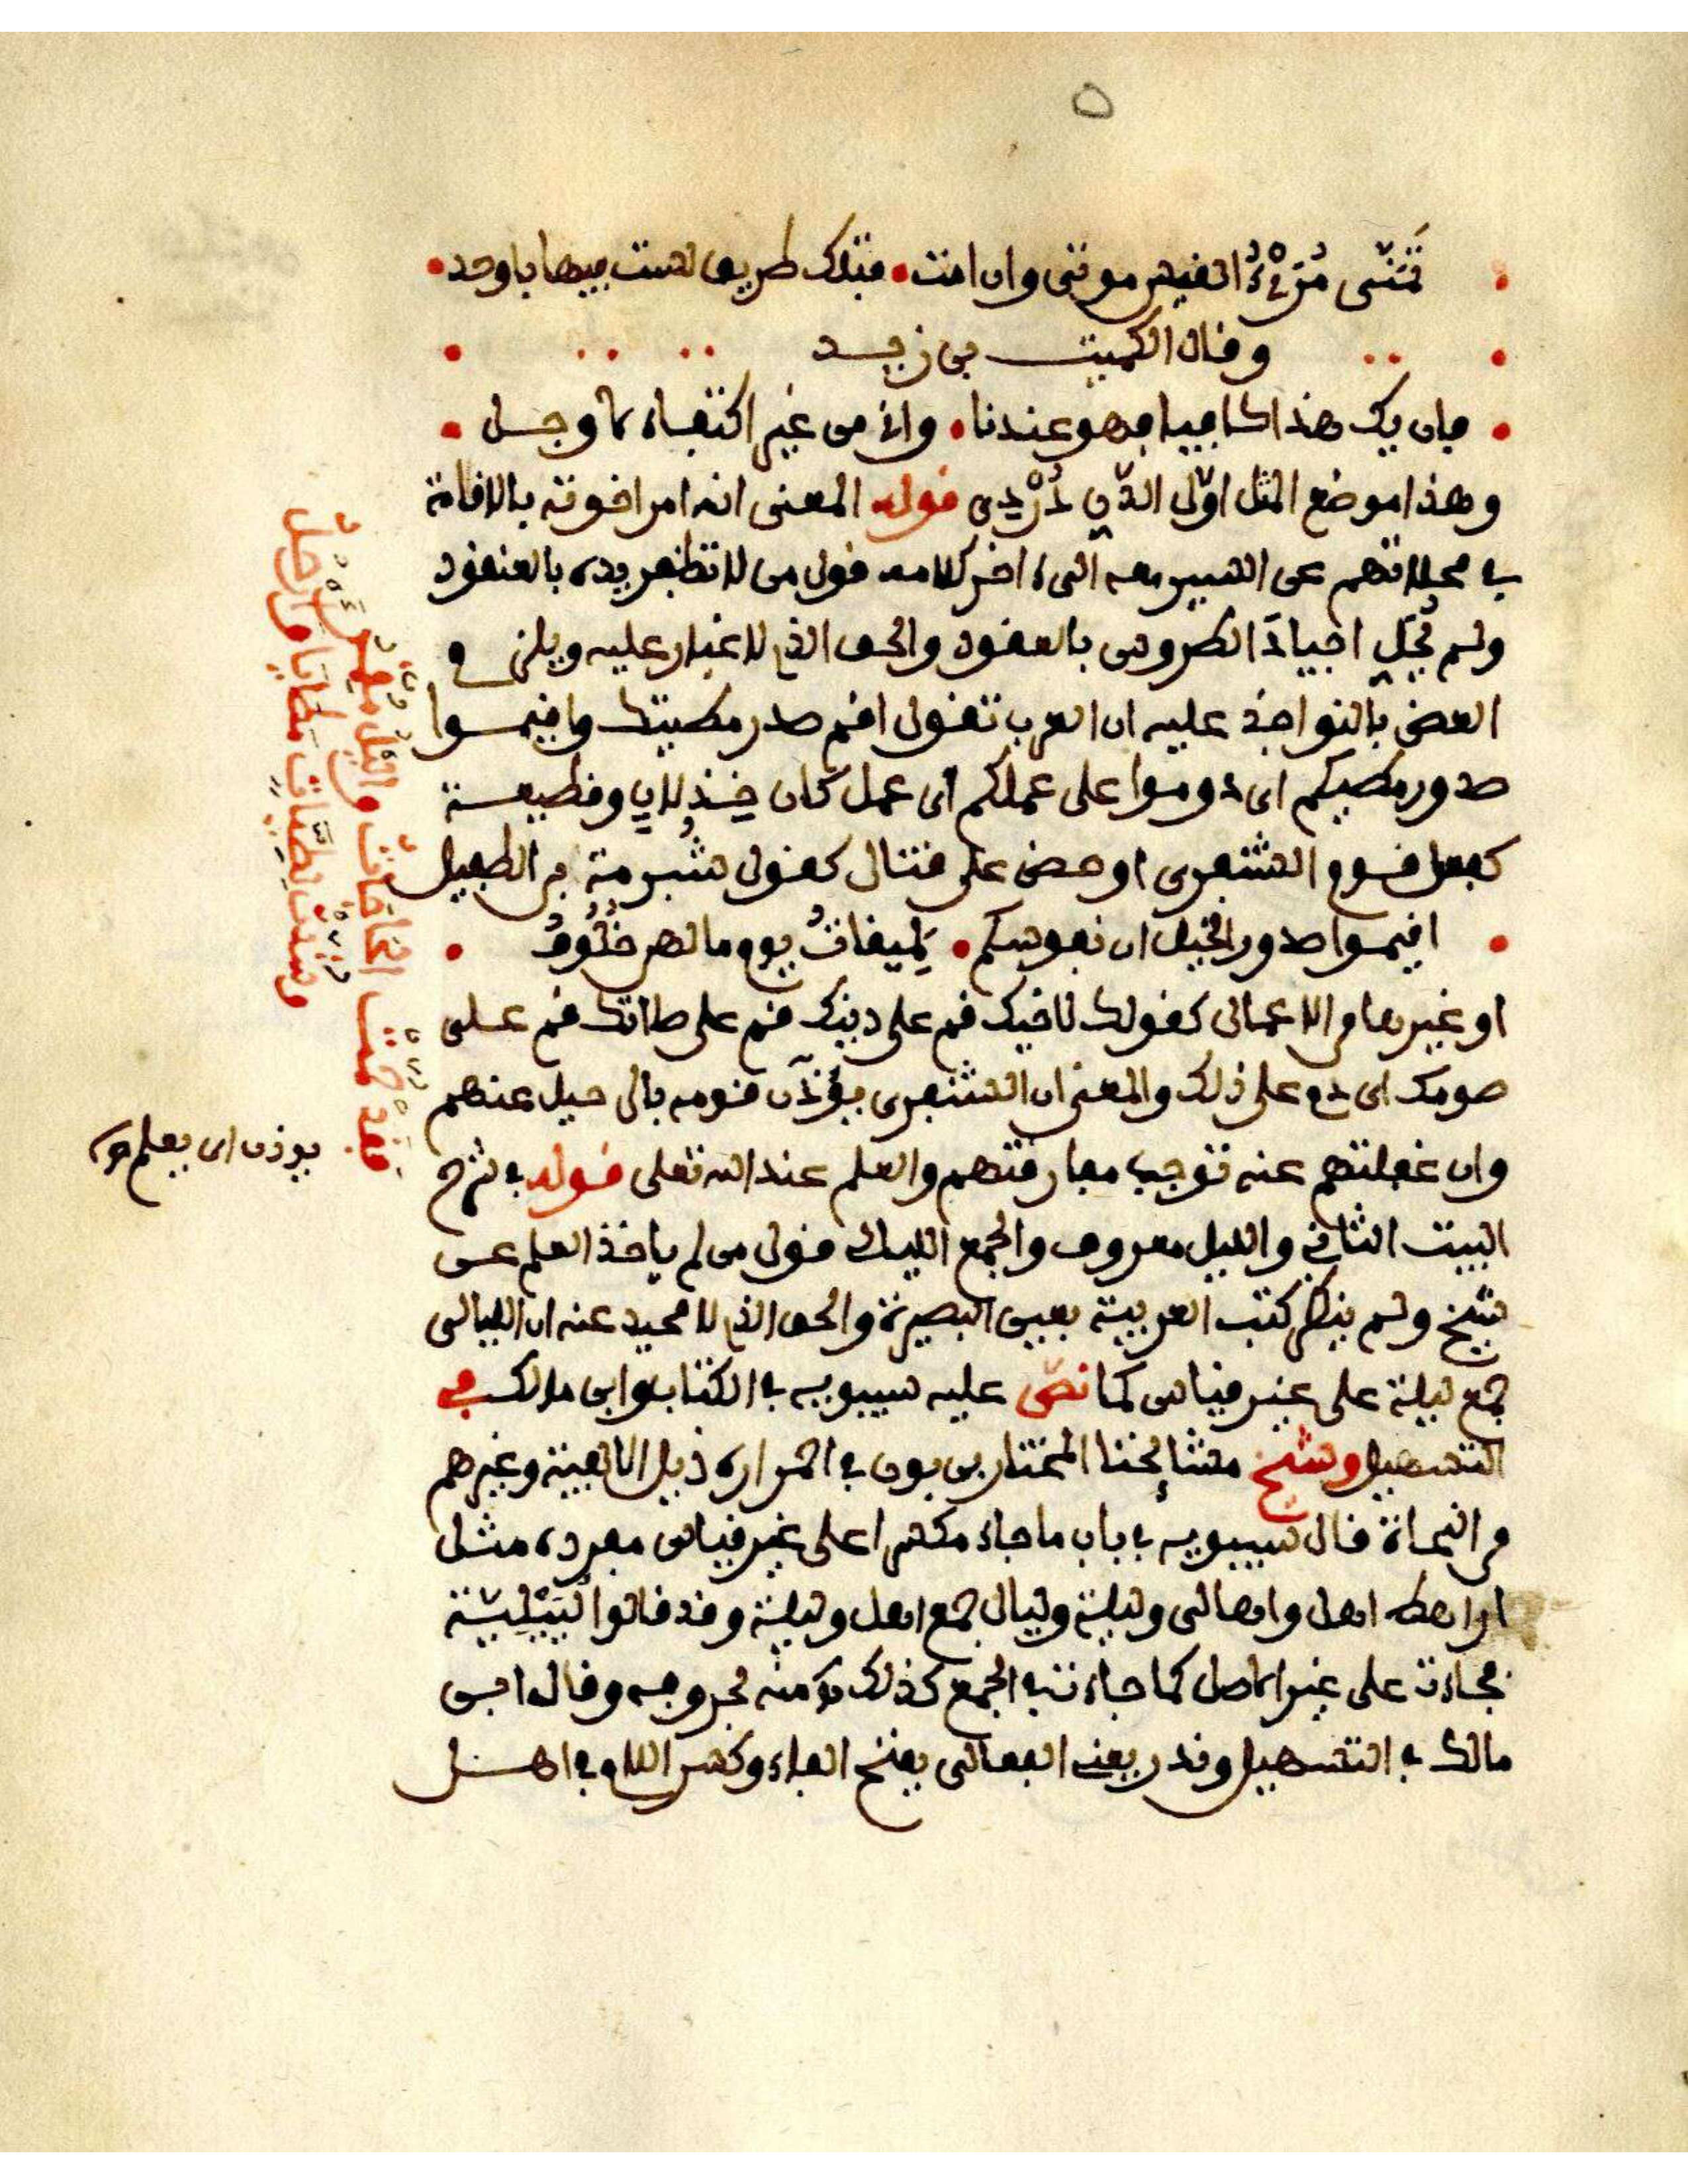 ٥
تَمَنَّى مُرَيْءُ القيس موتى وان امت • فتلك طريق لست فيها باوحد •
وقال الكميت بن زيد
• فان يك هذا كافيا فهو عندنا • وانى من غير اكتفاء لأوجل •
وهذا موضع المثل اوّل الدَّنِّ دُرْدِي قوله المعنى انه امر اخوته بالاقامة
في محلاتهم عن السير معه الى اخر كلامه قول من لا تظفر يده بالعنقود
ولم تُحَلِ اجيادَ الطروس بالعقود والحق الذي لا غبار عليه ويلزم
العض بالنواجذ عليه ان العرب تقول اقم صدر مطيتك واقيموا
صدور مطيكم اى دوموا على عملكم اى عمل كان وقطيعة
كفعل قوم الشنفرى او حض على قتال كقول شُبرمة بن الطفيل
• اقيموا صدور الخيل ان نفوسكم • لَمِيقاتُ يوم ما لهن خُلُوفُ •
او غيرها من الاعمال كقولك لاخيك قم على دينك قم على صلاتك قم على
صومك اى دم على ذلك والمعنى ان الشنفرى يؤذن قومه بالرحيل عنهم
وان غفلتهم عنه توجب مفارقتهم والعلم عند الله تعلى قوله في شرح
البيت الثاني والليل معروف والجمع الليال قول من لم ياخذ العلم عن
شيخ ولم ينظر كتب العربية بعين البصيرة والحق الذي لا محيد عنه ان الليالى
جمع ليلة على غير قياس كما نصَّ عليه سيبويه في الكتاب وابن مالك في
التسهيل وشيخ مشائخنا المختار بن بون في احمراره ذيل الالفية وغيرهم
من النحاة قال سيبويه في باب ما جاء مكسرا على غير قياس مفرده مثل
اراهط اهل واهالى وليلة وليال جمع اهل وليلة وقد قالوا لُيَيْلِيَّة
فجاءت على غير الاصل كما جاءت في الجمع كذلك وقال ابن
مالك في التسهيل وقدر يعنى الفعالى بفتح الفاء وكسر اللام في اهل
فَقَدْ حُمَّتْ الحَاجَاتُ والليْلُ مُقْمِرٌ
وشُدَّتْ لِطَيَّاتٍ مَطَايَا وأرْحُلُ
يوذن اى يعلم